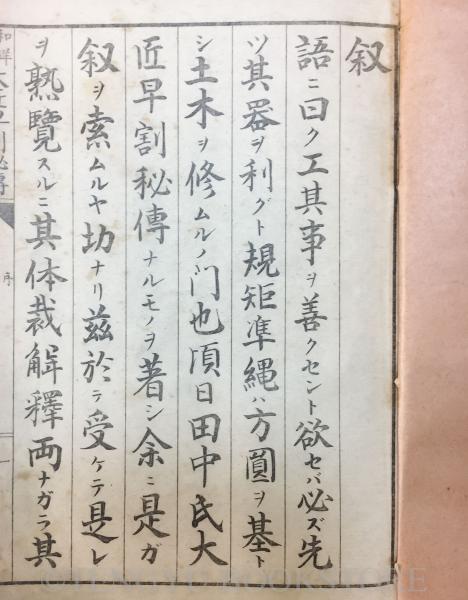 叙
語ニ曰ク工其事ヲ善クセント欲セバ必ズ先
ツ其器ヲ利グト規矩準縄ハ方圓ヲ基ト
シ土木ヲ修ムルノ門也頃日田中氏大
匠早割秘傳ナルモノヲ著シ余ニ是ガ
叙ヲ索ムルヤ切ナリ茲於テ受ケテ是レ
ヲ熟覽スルニ其体裁解釋両ナガラ其
序